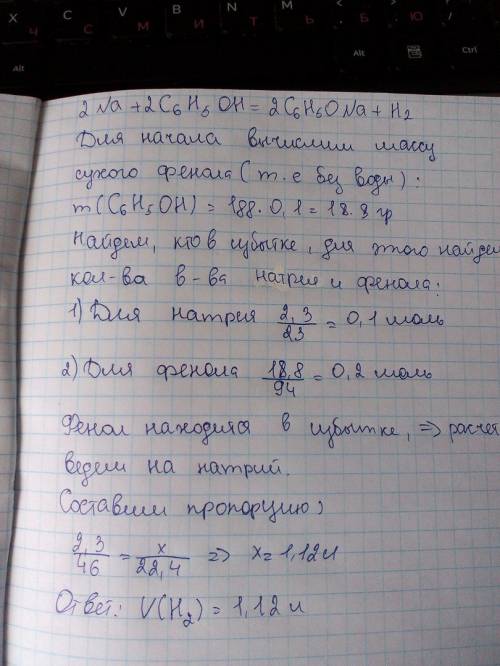 X C V B N M < >
Ч С М И Т Ь Б Ю /
Alt Alt Ctrl
2Na + 2C6H5OH = 2C6H5ONa + H2
Для начала вычислим массу
сухого фенола (т.е без воды):
m(C6H5OH) = 188 · 0,1 = 18.8 гр
Найдем, кто в избытке, для этого найдем
кол-ва в-ва натрия и фенола:
1) Для натрия 2,3/23 = 0,1 моль
2) Для фенола 18,8/94 = 0,2 моль
Фенол находится в избытке, => расчет
ведем на натрий.
Составим пропорцию:
2,3/46 = x/22,4 => x = 1,12 л
Ответ: V(H2) = 1,12 л